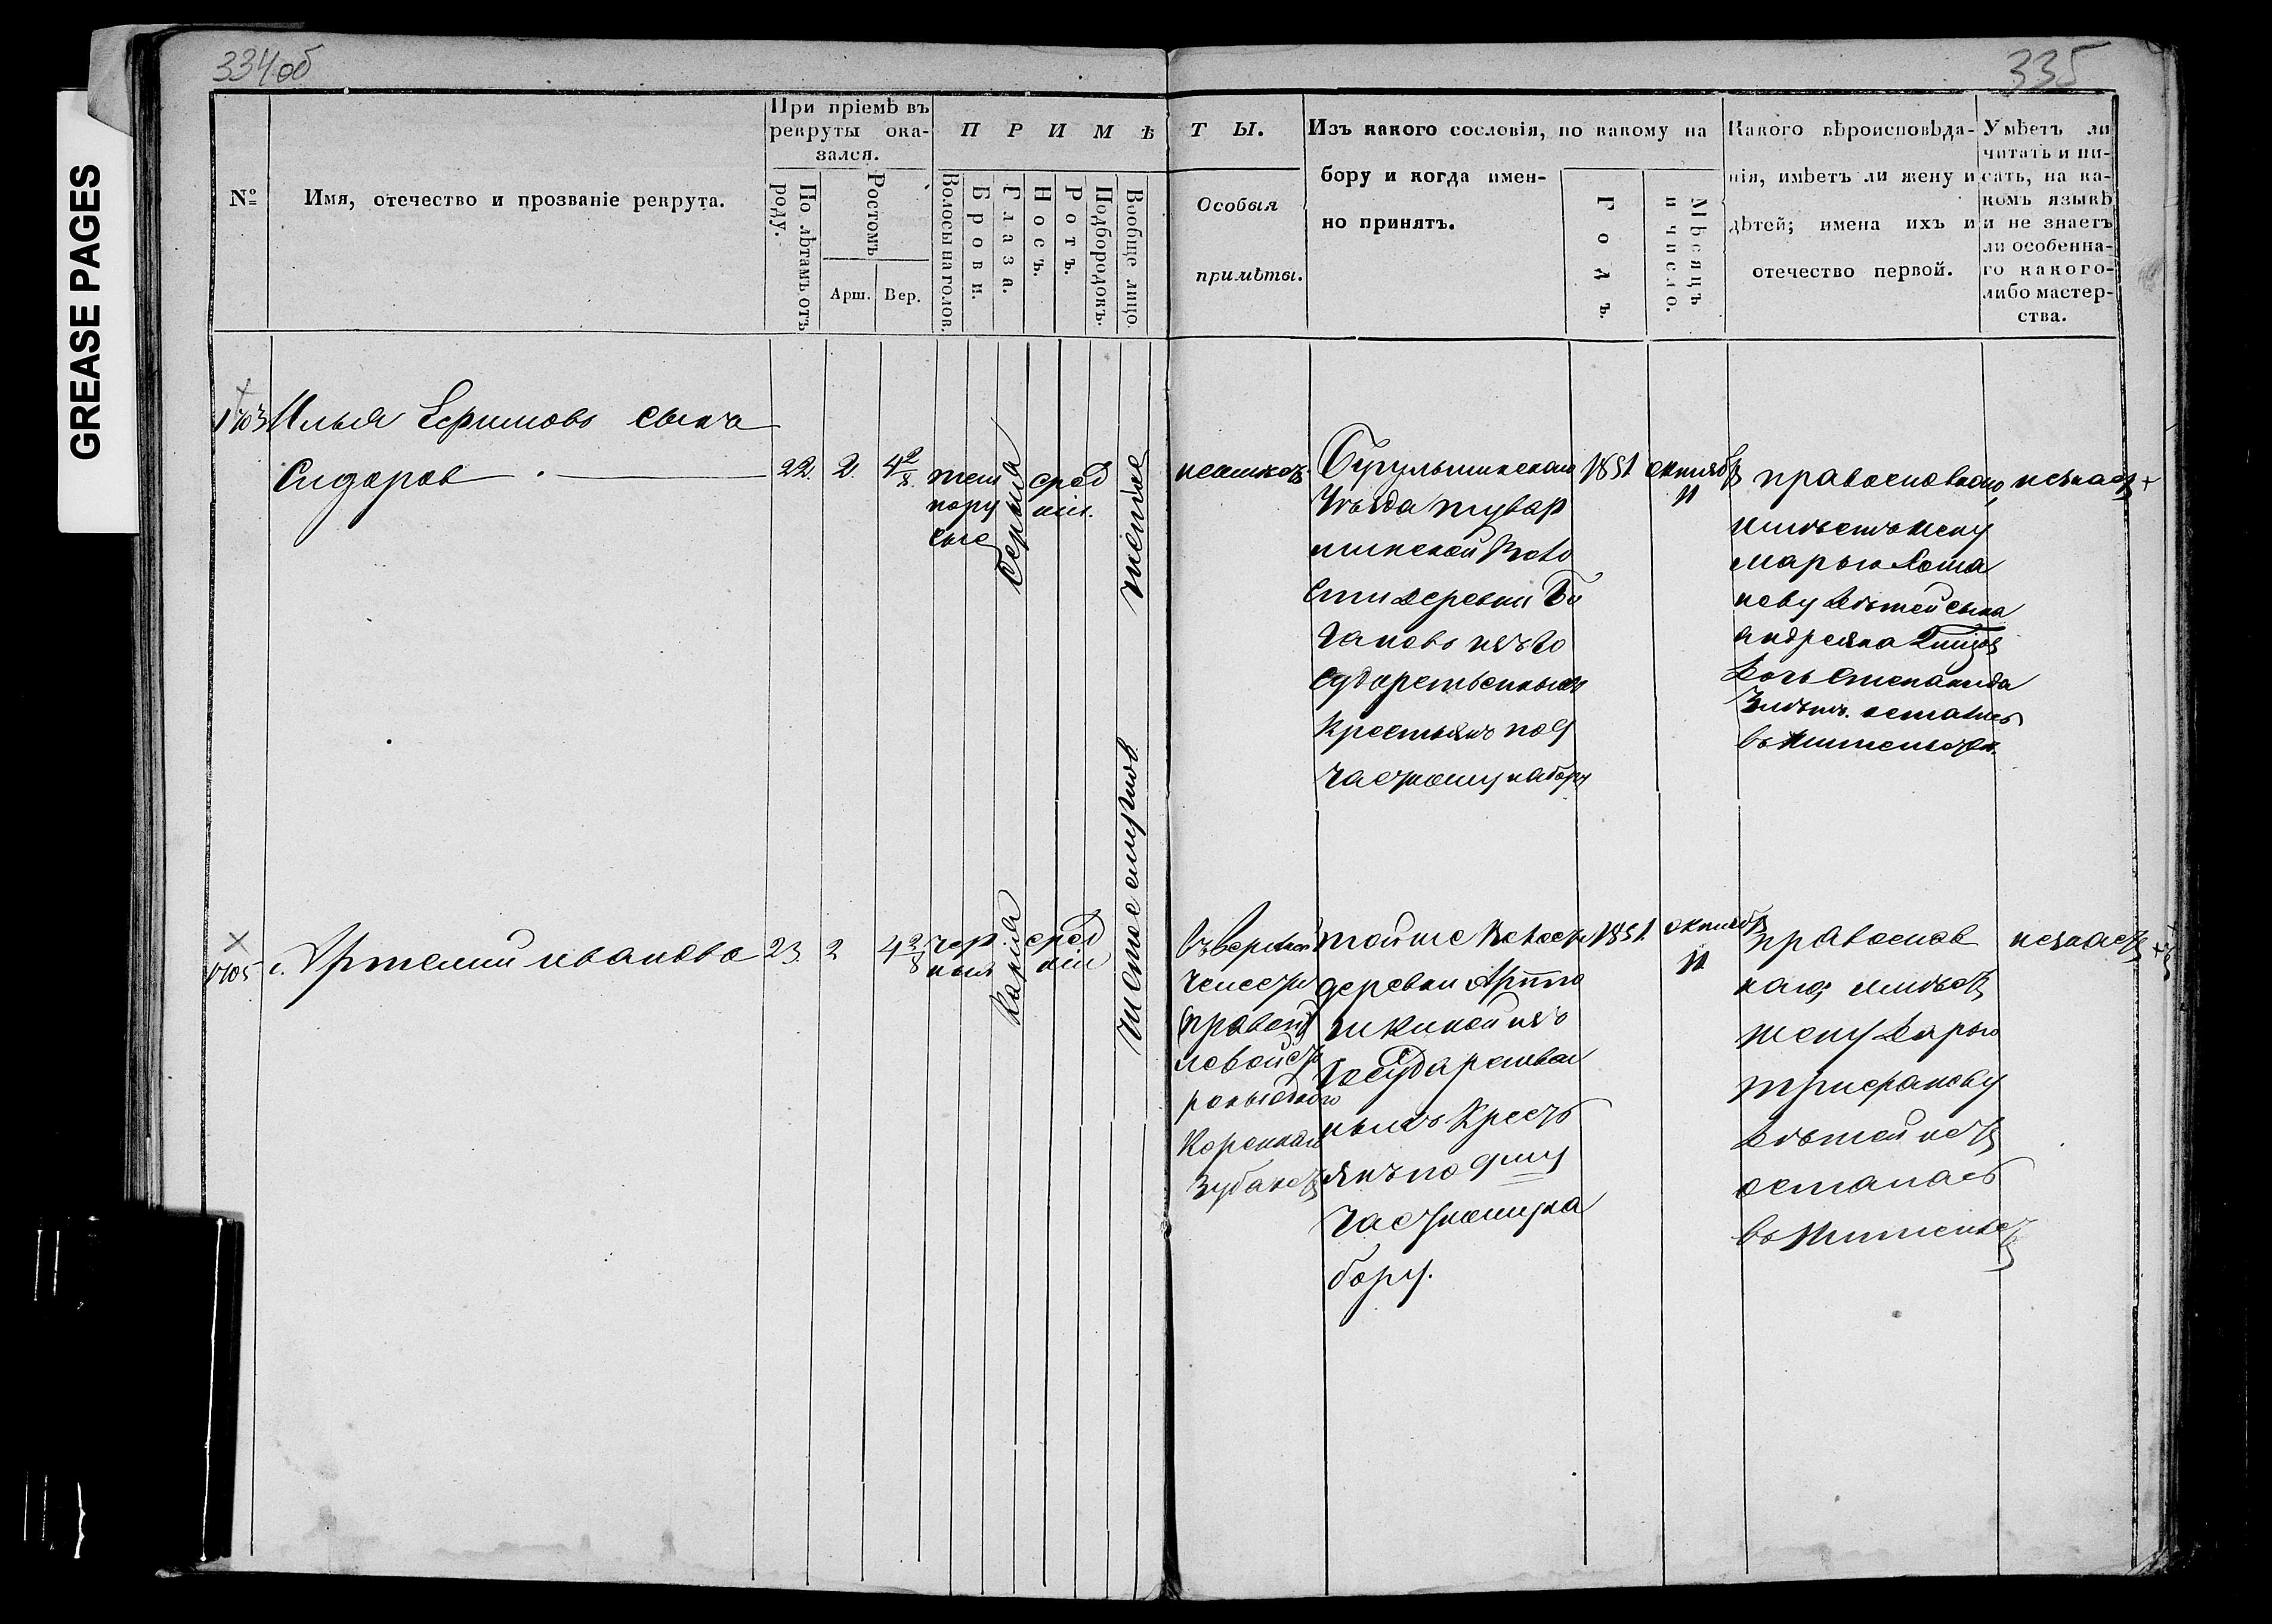 GREASE PAGES
334об
335
№
Имя, отечество и прозваніе рекрута.
При пріемѣ въ
рекруты ока-
зался.
По лѣтамъ отъ
роду.
Ростомъ
Арш.
Вер.
П Р И М Ѣ
Волосы на голов.
Брови.
Глаза.
Носъ.
Ротъ.
Подбородокъ.
Вообще лицо.
Т Ы.
Особыя
примѣты.
Изъ какого сословія, по какому на
бору и когда имен-
но принятъ.
Годъ.
Мѣсяцъ
и число.
Какого вѣроисповѣда-
нія, имѣетъ ли жену и
дѣтей; имена ихъ и
отечество первой.
Умѣетъ ли
читать и пи-
сать, на ка-
комъ языкѣ
и не знаетъ
ли особенна-
го какого-
либо мастер-
ства.
Илья Ефимовъ сынъ
Сидоров
22. 2. 4 2/8
темно
русые
серыя
сред
ніи.
1851 октябр
11
Уѣзда
деревни
сударственныхъ
крестьянъ по 9
частному набору
православнаго
имѣетъ жену
марью
дѣтей сына
андреяна
дочь степанида
остались
въ жительст.
незнает
1705
Артемий иванова
23. 2 4 2/8
чер
ныя
карія
сред
ніи
чистое смуглов
правой
роны однаго
кореннаго
зуба нет
тойже волости
деревни
изъ
государствен
ныхъ крест
янъ по 9му
частному на
бору.
1851 октябр
11
православ
наго имѣет
жену дарью
трифанову
дѣтей нет
осталась
въ жительст
незнает